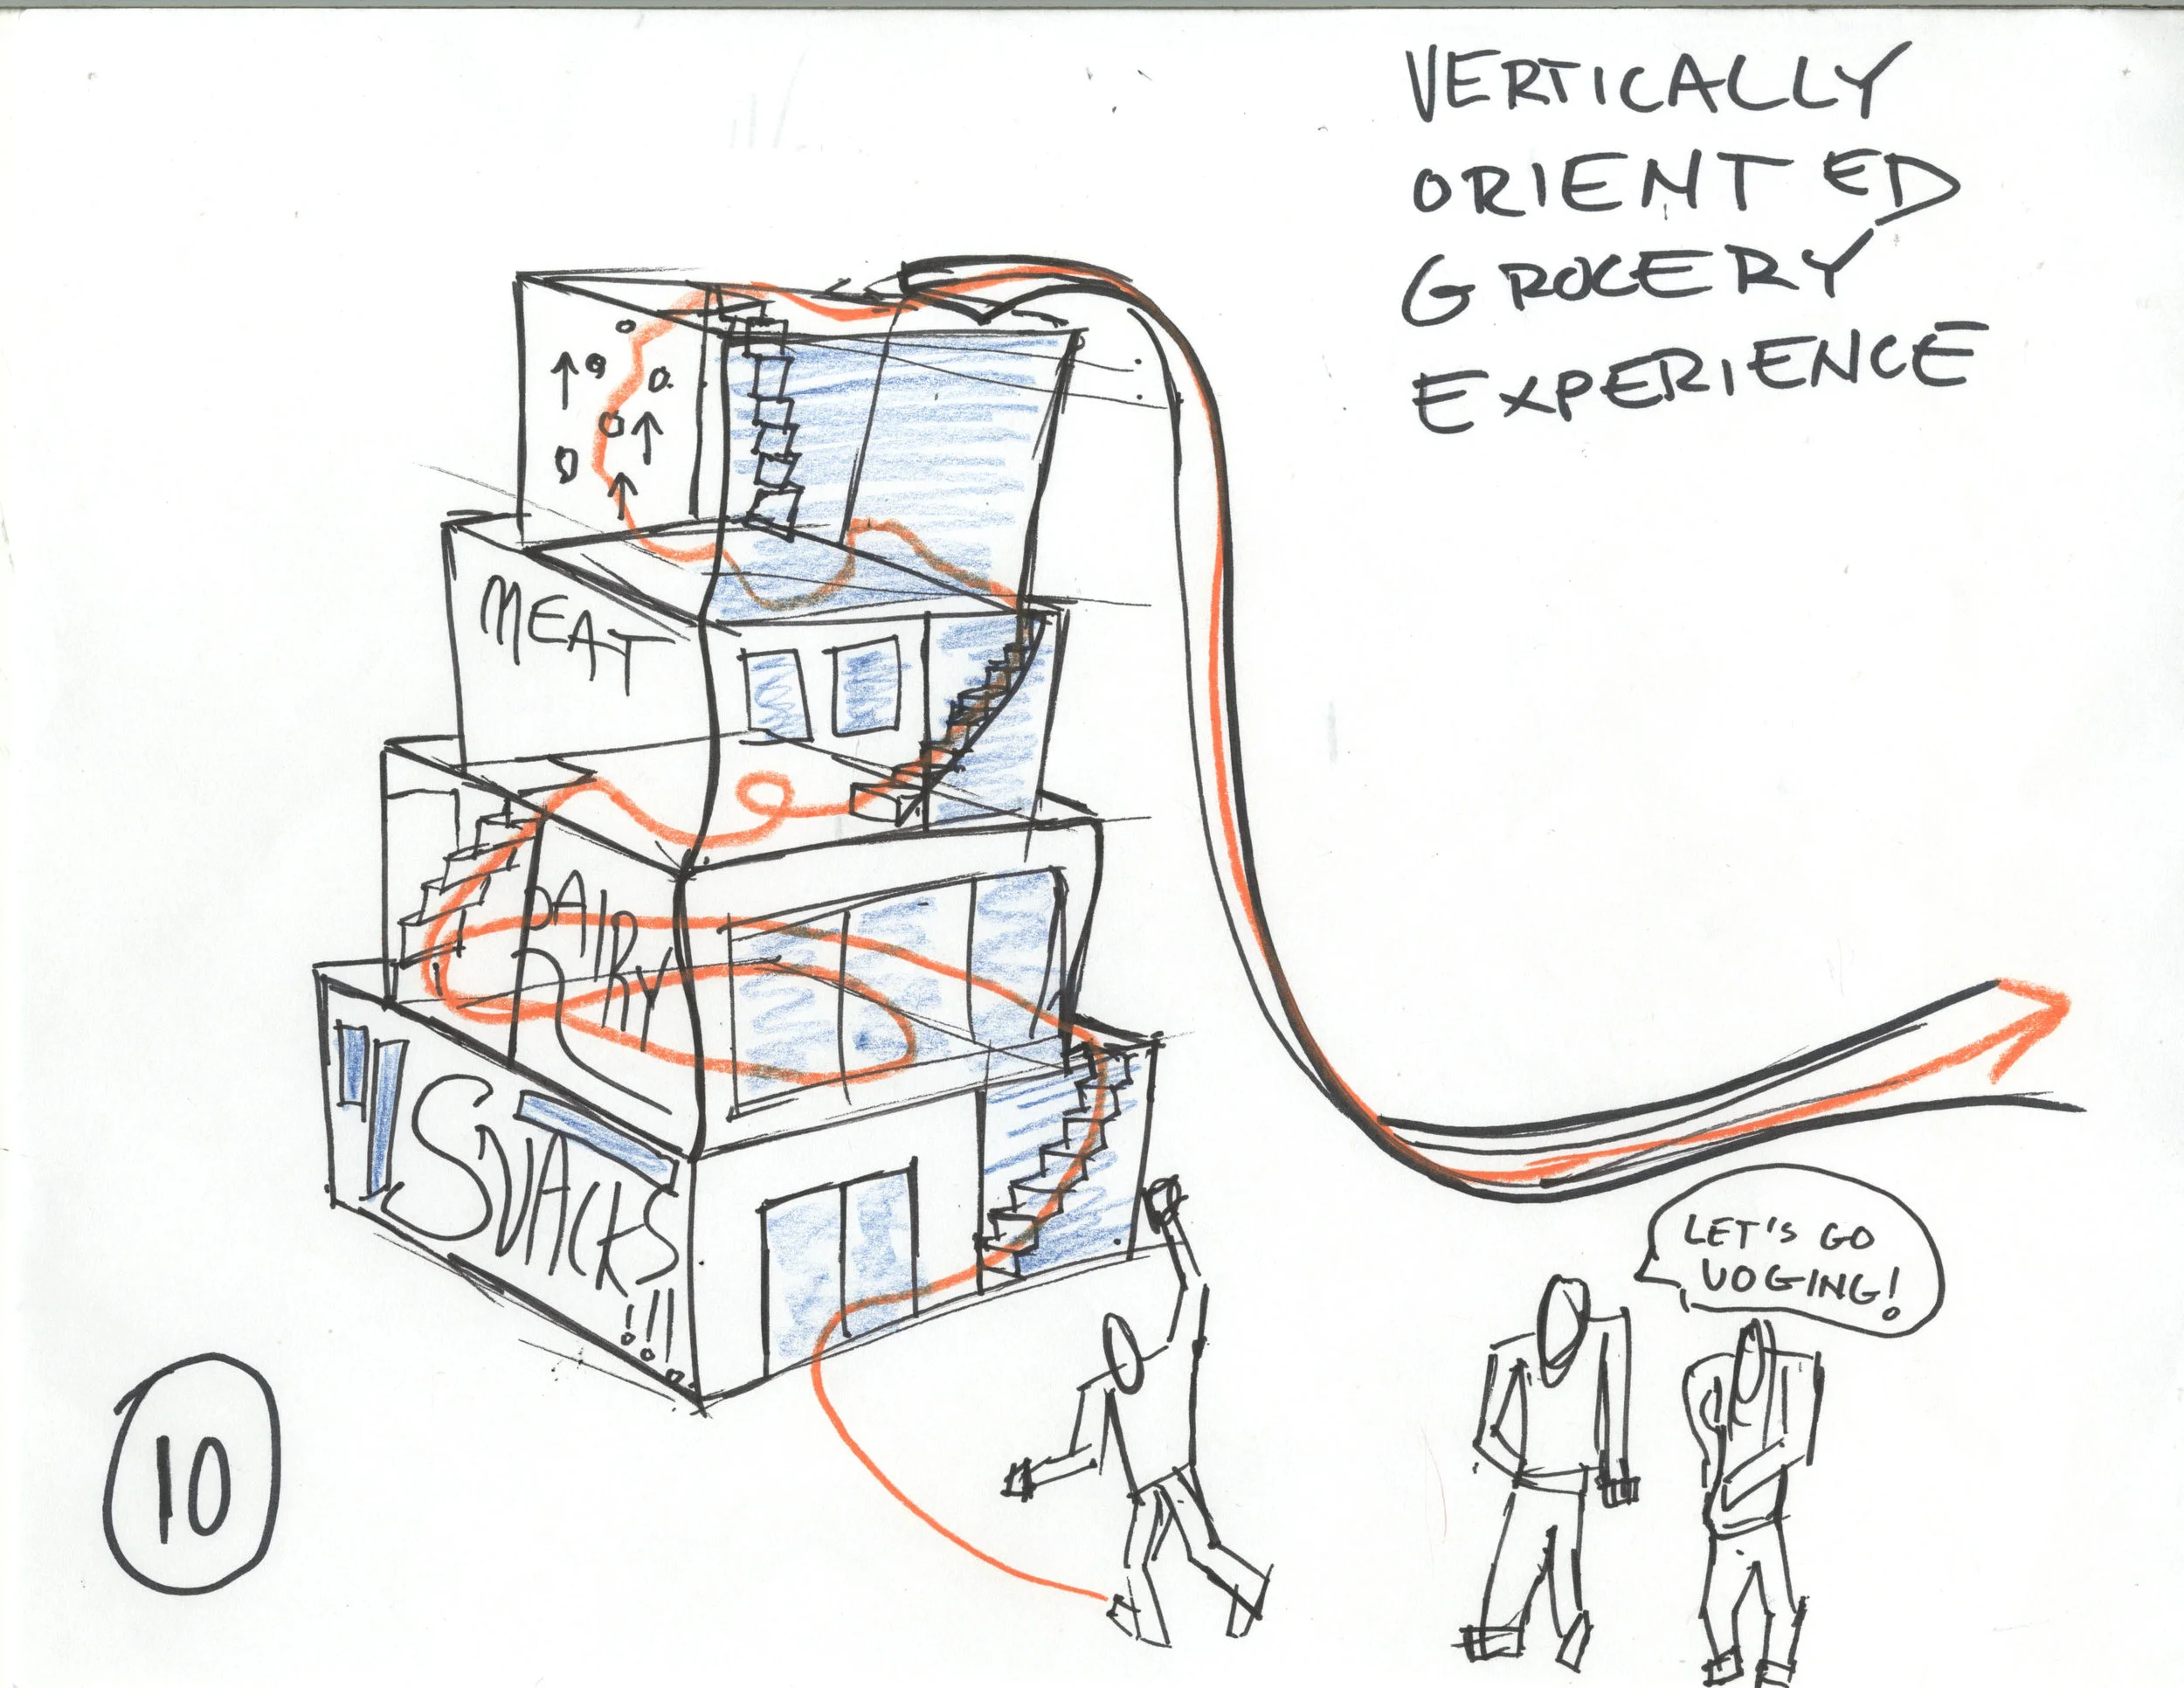 VERTICALLY
ORIENTED
GROCERY
EXPERIENCE
MEAT
DAIRY
SNACKS!!!
LET'S GO
VOGING!
10